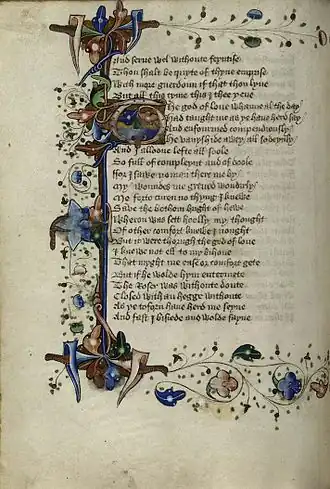 And serve wel withoute feyntise
Thou shalt be quyte of thyne emprise
With more guerdoun if that thou lyve
But all this tyme this I thee yeve
The god of love whanne al the day
Had taught me as ye have herd say
And enfourmed compendiously
He vanyshide awey all sodeynly
And I alloone lefte all soole
So full of compleynt and of doole
For I sawe no man there me by
My woundes me greved wonderly
Me forto curen no thyng I knewe
Save the bothom bright of hewe
Wheron was sett hoolly my thought
Of other comfort knewe I nought
But it were thorugh the god of love
I knewe not els to my bihove
That myght me ease or comfort gete
But if he wolde hym entermete
The Roser was withoute doute
Closed with an hegge withoute
As ye toforn have herd me seyne
And fast I bisiede and wolde fayne